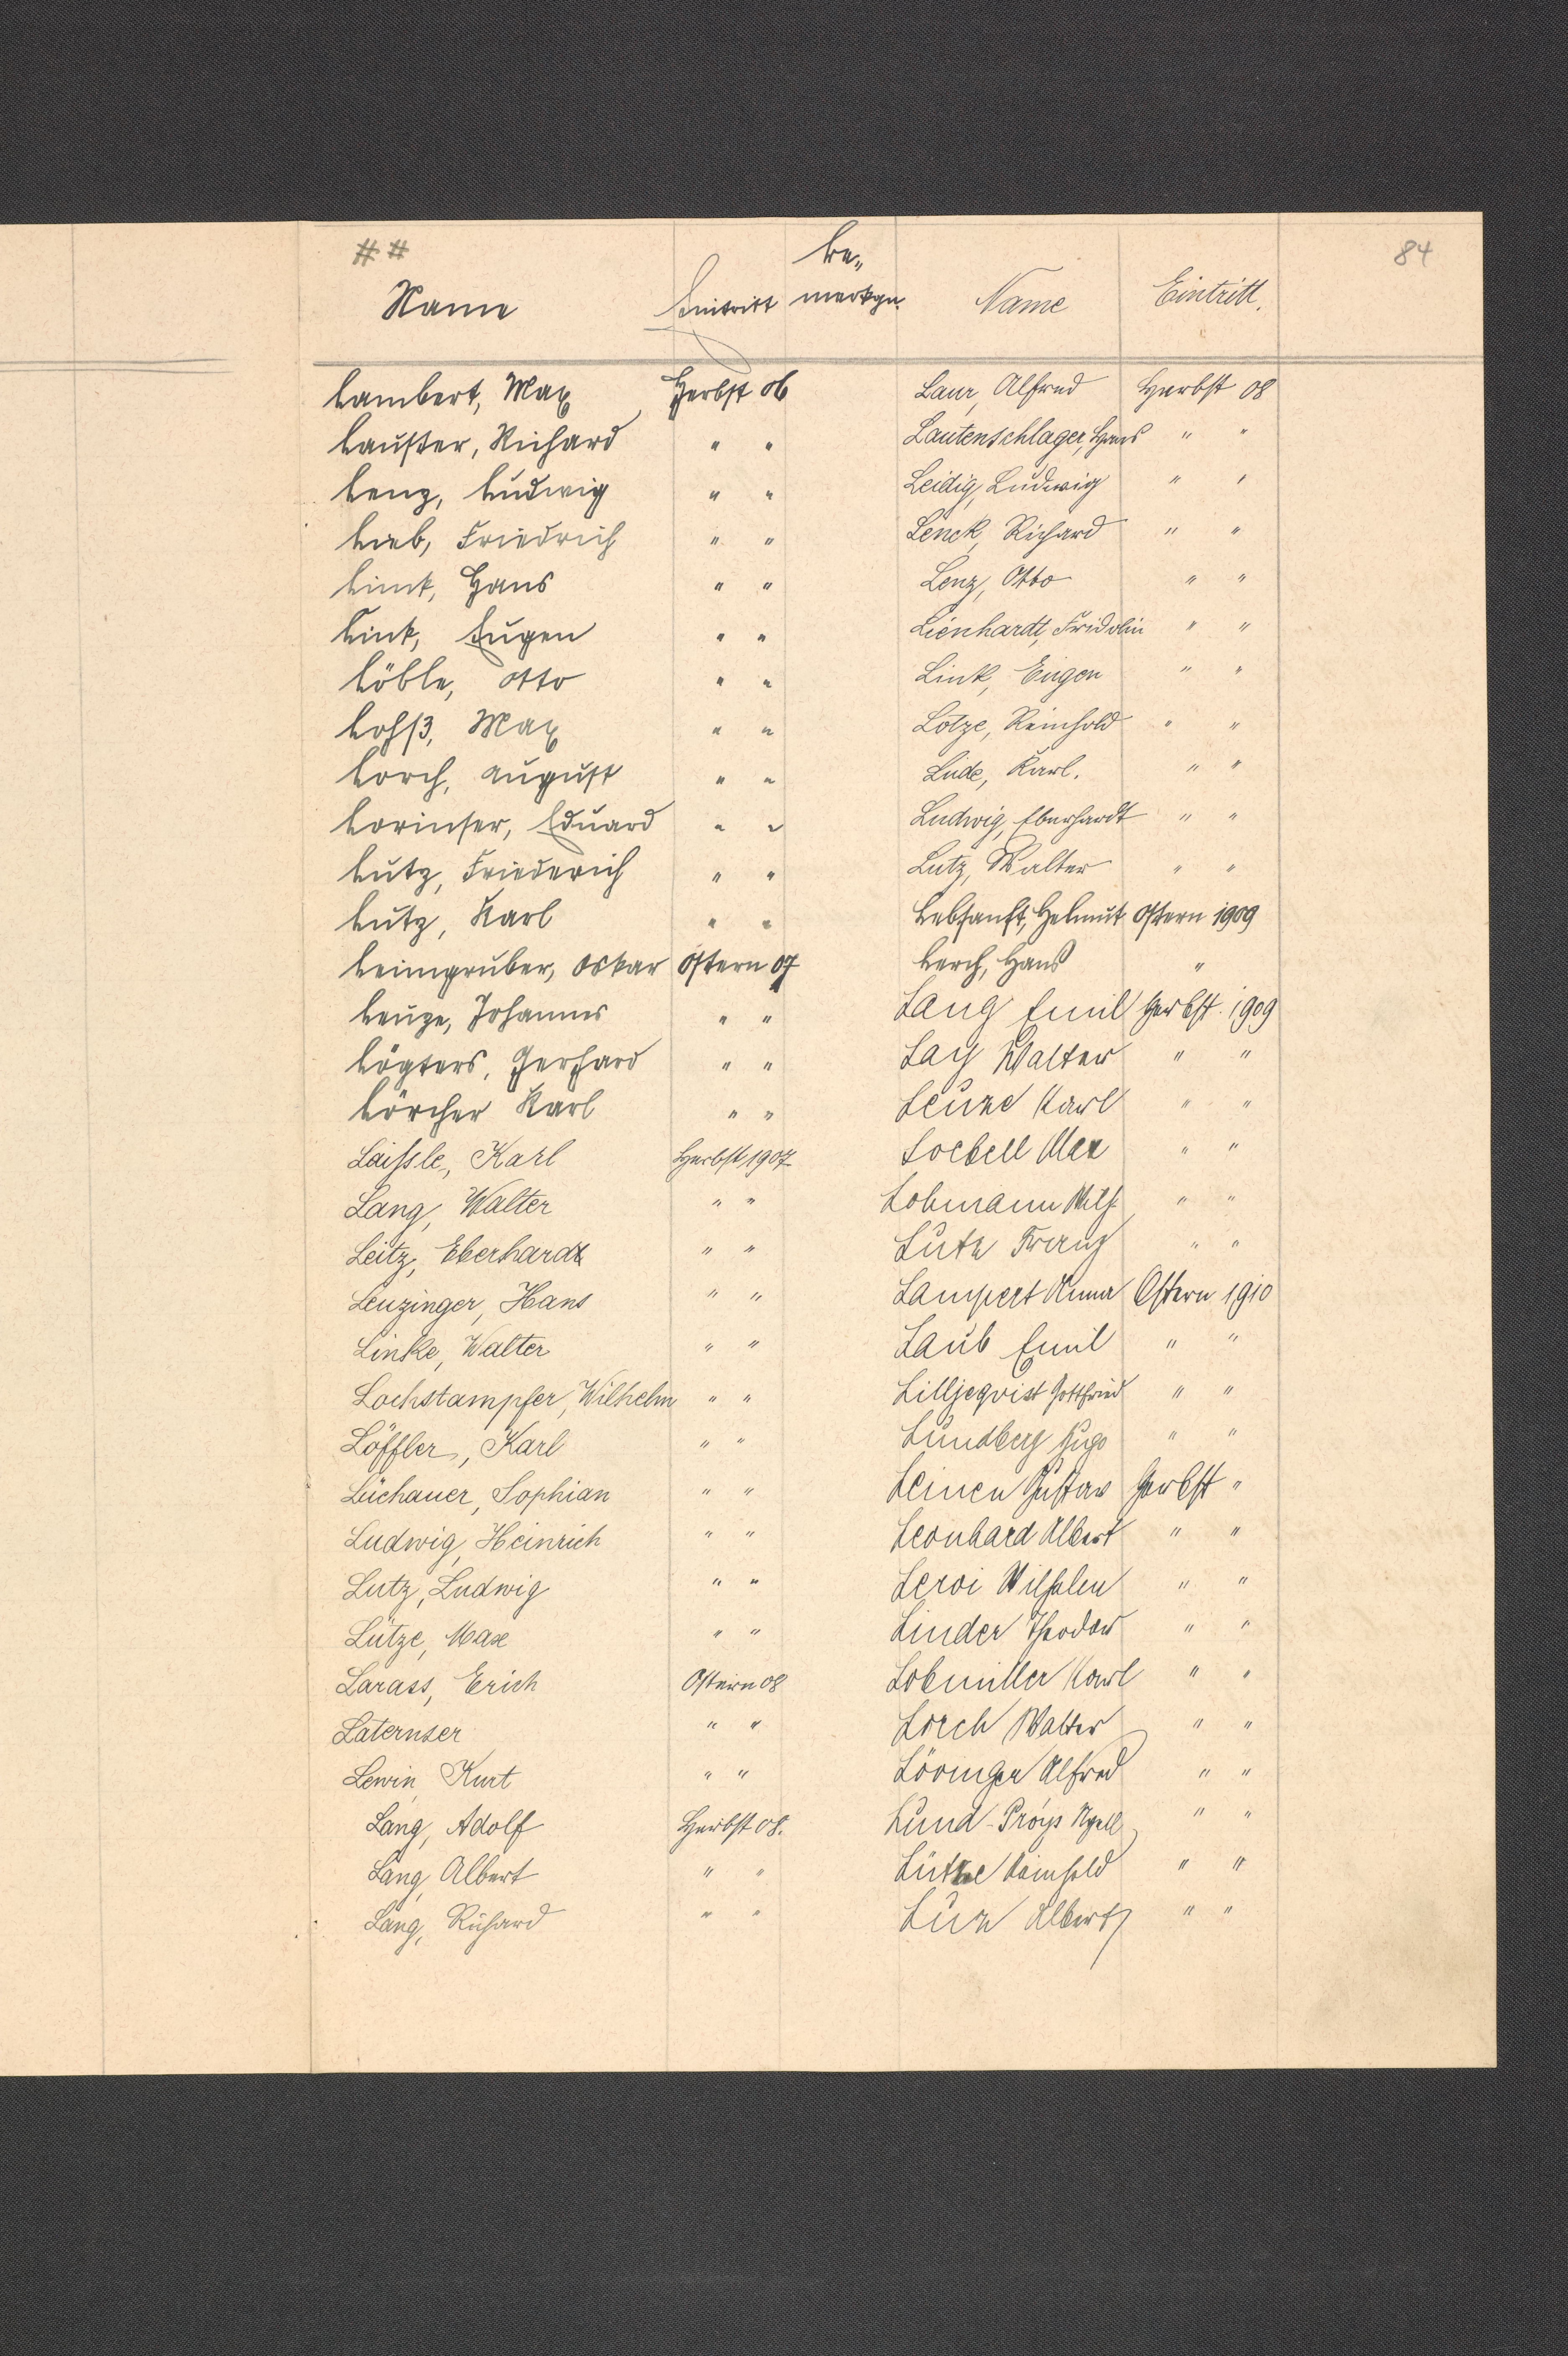 # #
84
Name Eintritt Be-
merkgn. Name Eintritt.
Lambert, Max Herbst 06
Lauster, Richard " "
Lenz, Ludwig " "
Lieb, Friedrich " "
Link, Hans " "
Link, Eugen " "
Löble, Otto " "
Lohß, Max " "
Lorch, August " "
Lorinser, Eduard " "
Lutz, Friederich " "
Lutz, Karl " "
Leimgruber, Oskar Ostern 07
Leuze, Johannes " "
Lögters, Gerhard " "
Lörcher Karl " "
Laissle, Karl Herbst 1907
Lang, Walter " "
Leitz, Eberhardt " "
Leuzinger, Hans " "
Linke, Walter " "
Lochstampfer, Wilhelm " "
Löffler, Karl " "
Lüchauer, Sophian " "
Ludwig, Heinrich " "
Lutz, Ludwig " "
Lütze, Max " "
Larass, Erich Ostern 08
Laternser " "
Lewin, Kurt " "
Lang, Adolf Herbst 08.
Lang, Albert " "
Lang, Richard " "
Laur, Alfred Herbst 08
Lautenschlager, Hans " "
Leidig, Ludwig " "
Lenck, Richard " "
Lenz, Otto " "
Lienhardt, Fridolin " "
Link, Eugen " "
Lotze, Reinhold " "
Lude, Karl. " "
Ludwig, Eberhardt " "
Lutz, Walter " "
Lebsanft, Helmut Ostern 1909
Lerch, Hans "
Lang Emil Herbst. 1909
Lay Walter " "
Leuze Karl " "
Loebell Max " "
Lobmann Wilh. " "
Lutz Franz " "
Lampert Anna Ostern 1910
Laub Emil " "
Lilljeqvist Gottfried " "
Lundberg Hugo " "
Leinen Gustav Herbst "
Leonhard Albert " "
Leroi Wilhelm " "
Linder Theodor " "
Lobmiller Karl " "
Lorch Walter " "
Lövinger Alfred " "
Lund- " "
Lütze Reinhold " "
Luz Albert " "